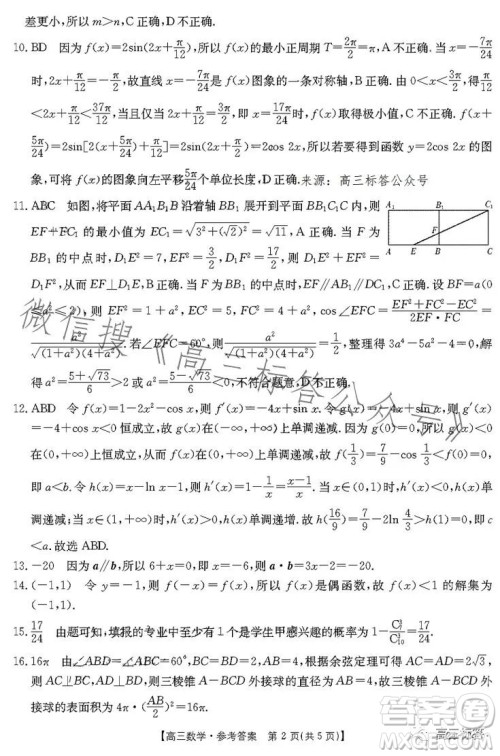 差更小,所以 m>n,C正确,D不正确.
10. BD 因为 f(x)=2sin(2x+π/12),所以 f(x)的最小正周期 T=2π/2=π,A不正确. 当 x=-7π/24
时,2x+π/12=-π/2,故直线 x=-7π/24是 f(x)图象的一条对称轴,B正确. 由 0<x<3π/2,得π/12
<2x+π/12<37π/12,当且仅当 2x+π/12=3π/2时,f(x)取得极小值,C不正确. f(x+
5π/24)=2sin[2(x+5π/24)+π/12]=2sin(2x+π/2)=2cos 2x,所以若函数 g(x)=2cos 2x,则
f(x)的图象向左平移5π/24个单位长度得到函数 g(x)的图象,D正确. 来源:高三标答公众号
11. ABC 如图,将平面 AA₁B₁B 沿着旋转 BB₁ 展开到平面 BB₁C₁C 内,则
EF+FC₁ 的最小值为 EC₁=√(3²+(√2)²)=√11,A正确. 当 F 为
BB₁ 的中点时,D₁E²=7,EF²=3/2,D₁F²=17/2,则 D₁E²+EF²=
D₁F²,从而 EF⊥D₁E,B正确. 当 F 为 BB₁ 的中点时,EF∥FC₁,C正确. 设 BF=a(0
≤a<2),则 EF²=1+a²,EC²=5,FC²=4+a²,cos∠EFC=(EF²+FC²-EC²)/(2EF·FC)
=a²/√((1+a²)(4+a²)). 若∠EFC=60°,则 a²/√((1+a²)(4+a²))=1/2,整理得 3a⁴-5a²-4=0,解
得 a²=(5+√73)/6>2或 a²=(5-√73)/6<0,D不正确.
12. ABD 令 f(x)=1-2x²-cos x,则 f′(x)=-4x+sin x. 令 g(x)=-4x+sin x,则 g′(x)=
-4+cos x<0恒成立,从而 g(x)在(-∞,+∞)上单调递减. 因为 g(0)=0,所以 g(x)<0在
(0,+∞)上恒成立,从而 f(x)在(0,+∞)上单调递减. 因为 f(0)=0,所以 f(1/3)=7/9-cos 1/3<0,
即 a<b. 令 h(x)=x-ln x-1,则 h′(x)=1-1/x=(x-1)/x. 当 x∈(0,1)时,h′(x)<0,h(x)单
调递减;当 x∈(1,+∞)时,h′(x)>0,h(x)单调递增. h(16/9)=7/9-2ln 4/3>h(1)=0,即 c
<a. 故选 ABD.
13. -20 因为 a∥b,所以 6+x=0,即 x=-6,则 a·b=3x-2=-20.
14. (-1,1) 令 y=-1,则 f(-x)=f(x),所以 f(x)是偶函数,故 f(x)<1 的解集为
(-1,1).
15. 17/24 由题可知,填报的专业中至少有1个是学生甲感兴趣的概率为 1-C₇³/C₁₀³=17/24.
16. 16π 由∠ABD=∠ABC=60°,BC=BD=2,AB=4,根据余弦定理可得 AC=AD=2√3,
所以 AC⊥BC,AD⊥BD,则三棱锥 A-BCD 外接球的球心为 AB 的中点,故三棱锥 A-
BCD 外接球的表面积为 4π×(AB/2)²=16π.
A₁
B₁
C₁
A
E
B
C
F
微信搜《高三标答公众号》
【高三数学·参考答案 第 2 页(共 5 页)】